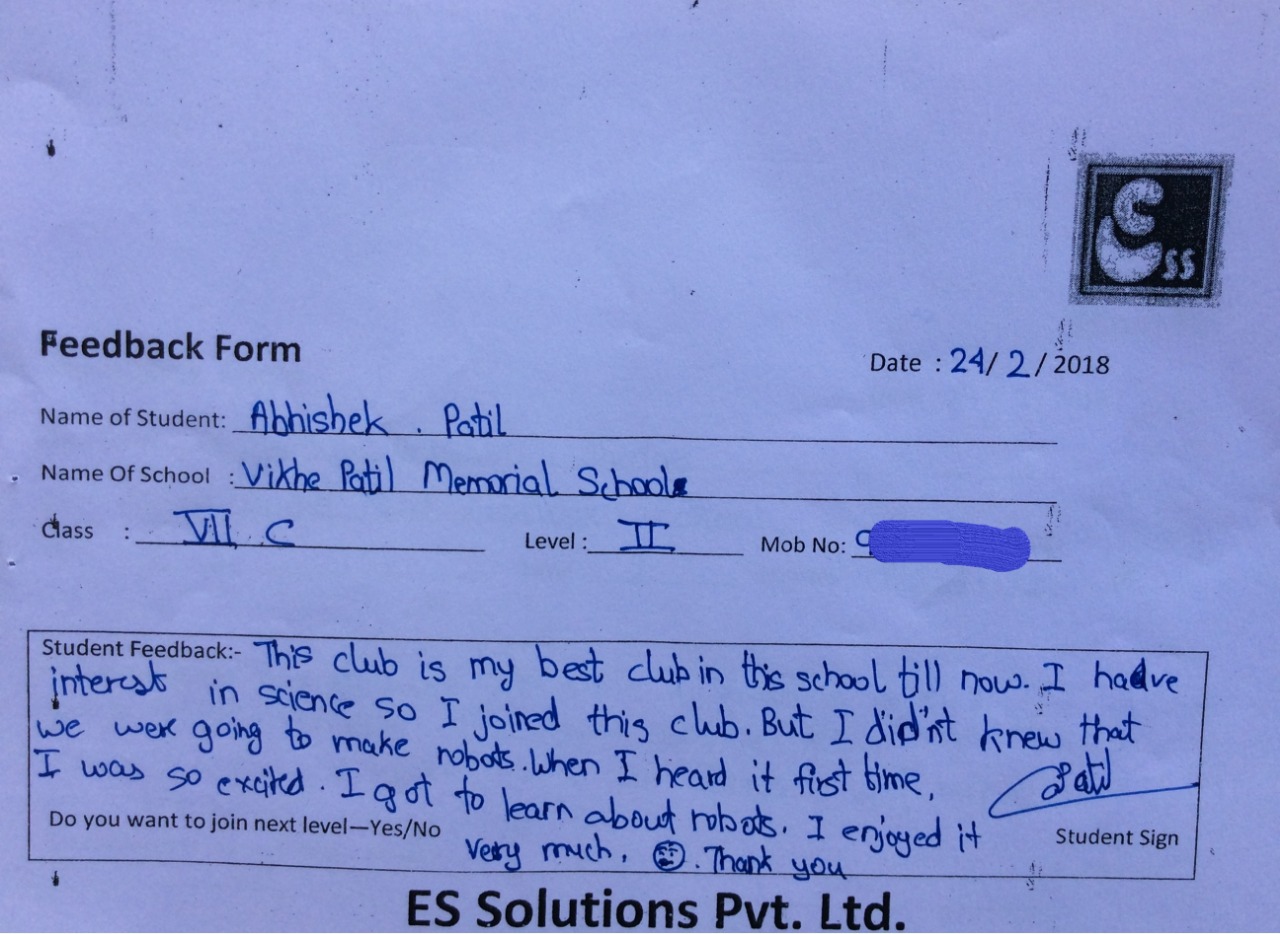 Ess
Feedback Form
Date : 24/ 2 / 2018
Name of Student: Abhishek . Patil
Name Of School : Vikhe Patil Memorial School
Class : VII C Level : II Mob No: 9
Student Feedback:- This club is my best club in this school till now. I have
interest in science so I joined this club. But I did'nt knew that
we were going to make robots. When I heard it first time,
I was so excited. I got to learn about robots. I enjoyed it
very much. Thank you
Patil
Do you want to join next level—Yes/No
Student Sign
ES Solutions Pvt. Ltd.